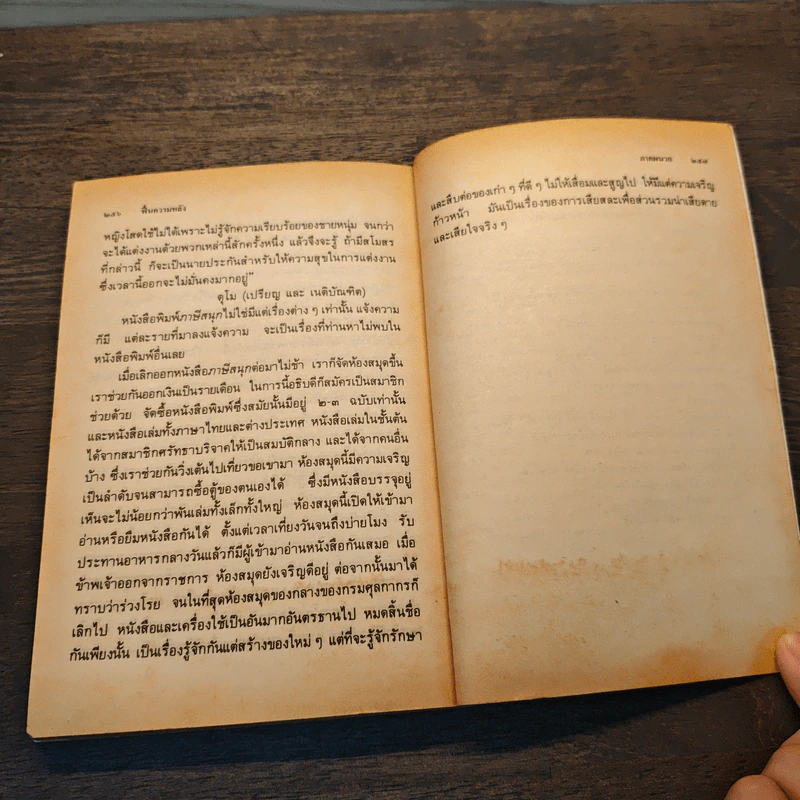 ๒๕๖ ฟื้นความหลัง
หญิงโสดใช้ไม่ได้เพราะไม่รู้จักความเรียบร้อยของชายหนุ่ม จนกว่า
จะได้แต่งงานด้วยพวกเหล่านี้สักครั้งหนึ่ง แล้วจึงจะรู้ ถ้ามีสโมสร
ที่กล่าวนี้ ก็จะเป็นนายประกันสำหรับให้ความสุขในการแต่งงาน
ซึ่งเวลานี้ออกจะไม่มั่นคงมากอยู่"
ดุโม (เปรียญ และ เนติบัณฑิต)
หนังสือพิมพ์ภาษีสนุกไม่ใช่มีแต่เรื่องต่าง ๆ เท่านั้น แจ้งความ
ก็มี แต่ละรายที่มาลงแจ้งความ จะเป็นเรื่องที่ท่านหาไม่พบใน
หนังสือพิมพ์อื่นเลย
เมื่อเลิกออกหนังสือภาษีสนุกต่อมาไม่ช้า เราก็จัดห้องสมุดขึ้น
เราช่วยกันออกเงินเป็นรายเดือน ในการนี้อธิบดีก็สมัครเป็นสมาชิก
ช่วยด้วย จัดซื้อหนังสือพิมพ์ซึ่งสมัยนั้นมีอยู่ ๒-๓ ฉบับเท่านั้น
และหนังสือเล่มทั้งภาษาไทยและต่างประเทศ หนังสือเล่มในชั้นต้น
ได้จากสมาชิกศรัทธาบริจาคให้เป็นสมบัติกลาง และได้จากคนอื่น
บ้าง ซึ่งเราช่วยกันวิ่งเต้นไปเที่ยวขอเขามา ห้องสมุดนี้มีความเจริญ
เป็นลำดับจนสามารถซื้อตู้ของตนเองได้ ซึ่งมีหนังสือบรรจุอยู่
เห็นจะไม่น้อยกว่าพันเล่มทั้งเล็กทั้งใหญ่ ห้องสมุดนี้เปิดให้เข้ามา
อ่านหรือยืมหนังสือกันได้ ตั้งแต่เวลาเที่ยงวันจนถึงบ่ายโมง รับ
ประทานอาหารกลางวันแล้วก็มีผู้เข้ามาอ่านหนังสือกันเสมอ เมื่อ
ข้าพเจ้าออกจากราชการ ห้องสมุดยังเจริญดีอยู่ ต่อจากนั้นมาได้
ทราบว่าร่วงโรย จนในที่สุดห้องสมุดของกลางของกรมศุลกากรก็
เลิกไป หนังสือและเครื่องใช้เป็นอันมากอันตรธานไป หมดสิ้นชื่อ
กันเพียงนั้น เป็นเรื่องรู้จักกันแต่สร้างของใหม่ ๆ แต่ที่จะรู้จักรักษา
ภาคผนวก
และสืบต่อของเก่า ๆ ที่ดี ๆ ไม่ให้เสื่อมและสูญไป ให้มีแต่ความเจริญ
ก้าวหน้า มันเป็นเรื่องของการเสียสละเพื่อส่วนรวมน่าเสียดาย
และเสียใจจริง ๆ